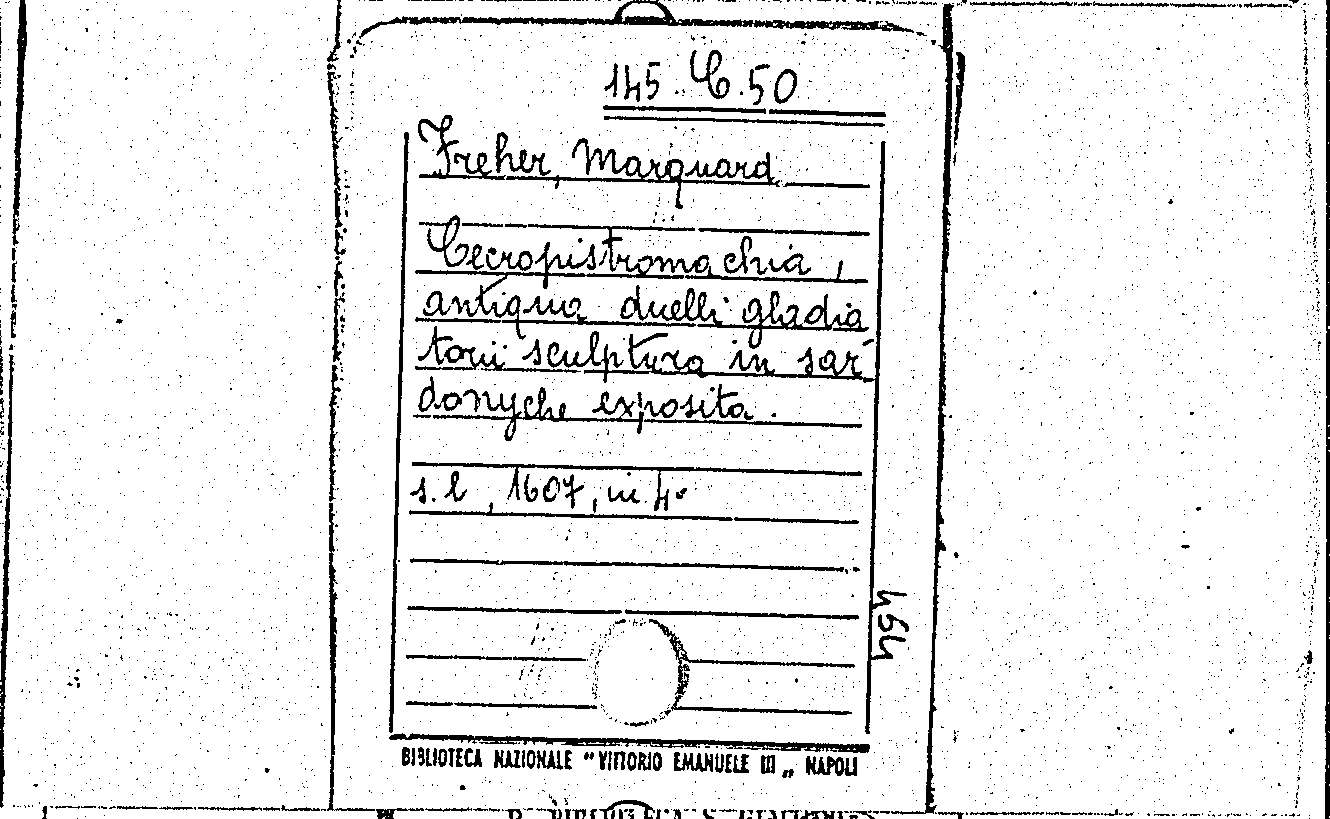 145.C.50
Freher, Marquard
Cecropistromachia,
antiqua duelli gladia
torii sculptura in sar-
donyche exposita.
s.l, 1607, in 4°
BIBLIOTECA NAZIONALE "VITTORIO EMANUELE III„ NAPOLI